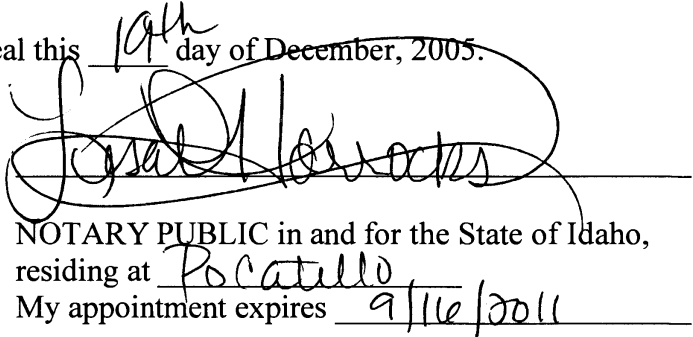 eal this 19th day of December, 2005.
Horrocks
NOTARY PUBLIC in and for the State of Idaho,
residing at Pocatello
My appointment expires 9/16/2011